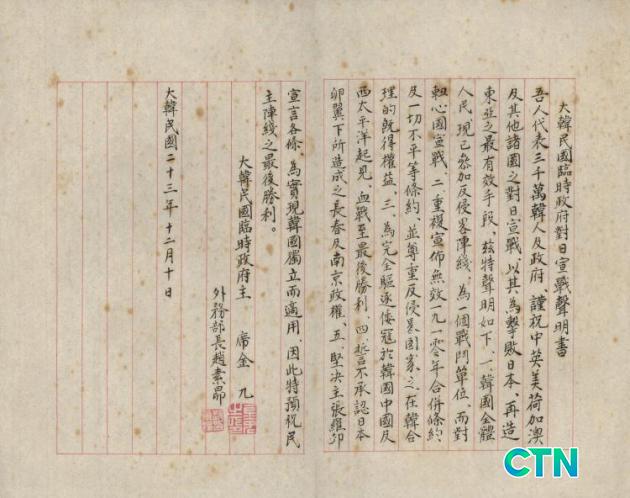 大韓民國臨時政府對日宣戰聲明書
吾人代表三千萬韓人及政府、謹祝中英美荷加澳
及其他諸國之對日宣戰、以其為擊敗日本、再造
東亞之最有效手段、玆特聲明如下、一、韓國全體
人民現已參加反侵畧陣綫、為一個戰鬥單位、而對
軸心國宣戰、二、重複宣佈無效一九一零年合併條約、
及一切不平等條約、並尊重反侵畧國家之、在韓合
理的旣得權益、三、為完全驅逐倭寇於韓國中國及
西太平洋起見、血戰至最後勝利、四、誓言不承認日本
卵翼下所造成之長春及南京政權、五、堅決主張羅邱
宣言各條、為實現韓國獨立而適用、因此特預祝民
主陣綫之最後勝利。
大韓民國臨時政府主 席金 九
外務部長趙素昂
大韓民國二十三年十二月十日
CTN